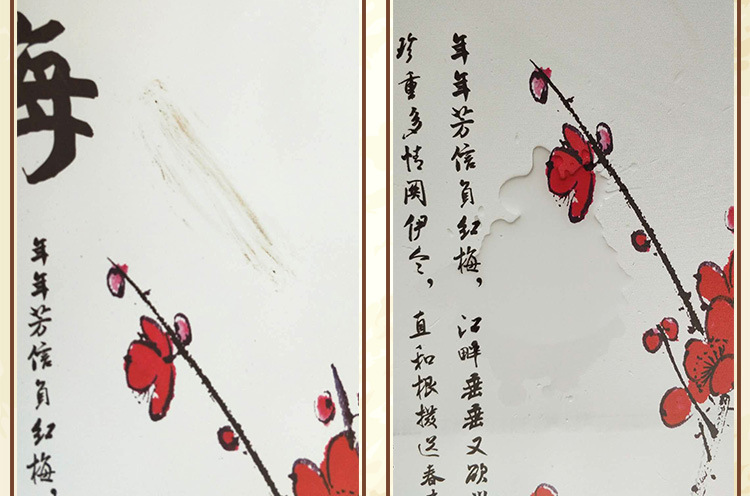 年年芳信負红梅,
年年芳信負红梅,江畔垂垂又欲
珍重多情関伊令,直和根撥送春